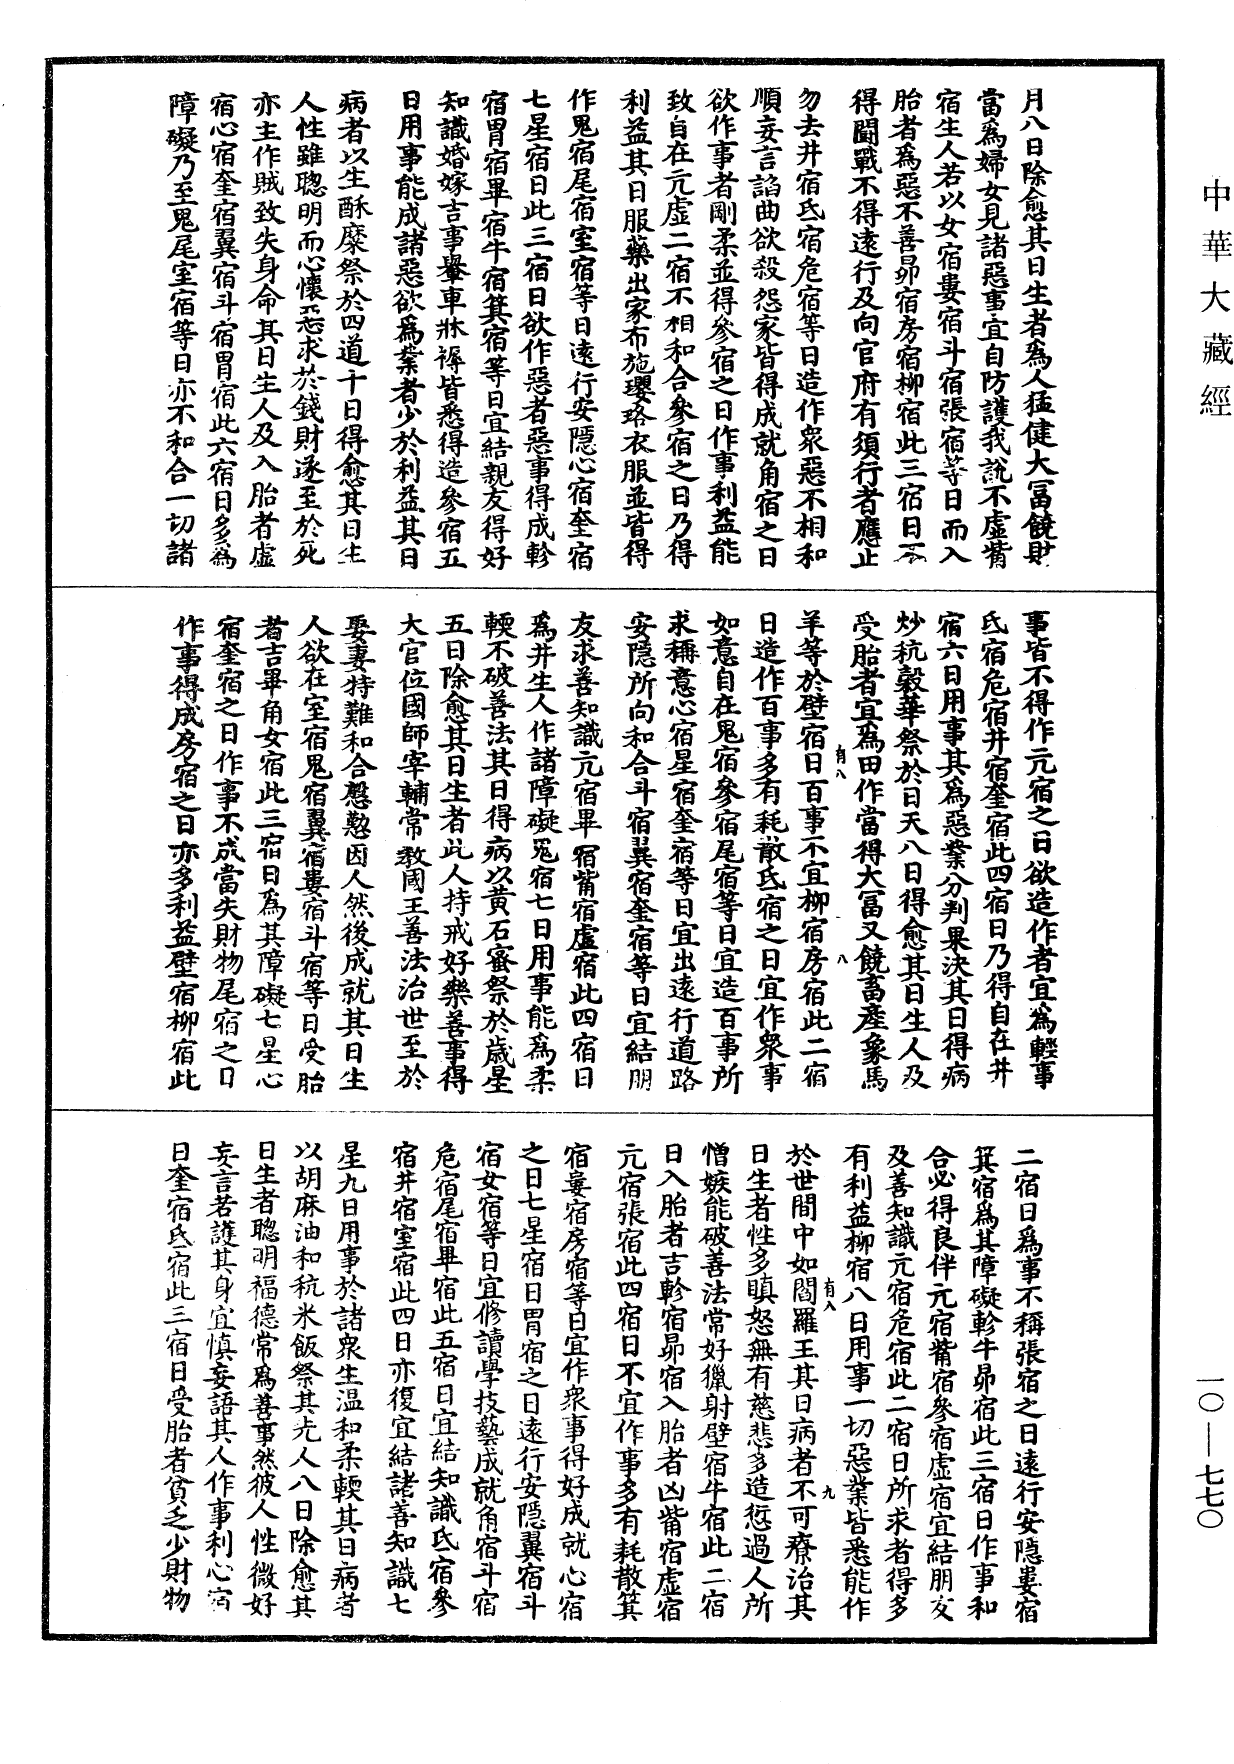 中華大藏經
月八日除愈其日生者為人猛健大冨饒財
當為婦女見諸惡事宜自防護我說不虛觜
宿生人若以女宿婁宿斗宿張宿等日而入
胎者為惡不善昴宿房宿柳宿此三宿日不
得鬬戰不得遠行及向官府有須行者應止
勿去井宿氐宿危宿等日造作衆惡不相和
順妄言諂曲欲殺怨家皆得成就角宿之日
欲作事者剛柔並得參宿之日作事利益能
致自在亢虛二宿不相和合參宿之日乃得
利益其日服藥出家布施瓔珞衣服並皆得
作鬼宿尾宿室宿等日遠行安隱心宿奎宿
七星宿日此三宿日欲作惡者惡事得成軫
宿胃宿畢宿牛宿箕宿等日宜結親友得好
知識婚嫁吉事轝車牀褥皆悉得造參宿五
日用事能成諸惡欲為業者少於利益其日
病者以生酥糜祭於四道十日得愈其日生
人性雖聰明而心懷惡求於錢財遂至於死
亦主作賊致失身命其日生人及入胎者虛
宿心宿奎宿翼宿斗宿胃宿此六宿日多為
障礙乃至鬼尾室宿等日亦不和合一切諸
事皆不得作亢宿之日欲造作者宜為輕事
氐宿危宿井宿奎宿此四宿日乃得自在井
宿六日用事其為惡業分判果決其日得病
炒秔穀華祭於日天八日得愈其日生人及
受胎者宜為田作當得大冨又饒畜產象馬
羊等於壁宿日百事不宜柳宿房宿此二宿
日造作百事多有耗散氐宿之日宜作衆事
如意自在鬼宿參宿尾宿等日宜造百事所
求稱意心宿星宿奎宿等日宜出遠行道路
安隱所向和合斗宿翼宿奎宿等日宜結朋
友求善知識亢宿畢宿觜宿虛宿此四宿日
為井生人作諸障礙鬼宿七日用事能為柔
輭不破善法其日得病以黃石蜜祭於歲星
五日除愈其日生者此人持戒好樂善事得
大官位國師宰輔常教國王善法治世至於
娶妻特難和合慇懃因人然後成就其日生
人欲在室宿鬼宿翼宿婁宿斗宿等日受胎
者吉畢角女宿此三宿日為其障礙七星心
宿奎宿之日作事不成當失財物尾宿之日
作事得成房宿之日亦多利益壁宿柳宿此
二宿日為事不稱張宿之日遠行安隱婁宿
箕宿為其障礙軫牛昴宿此三宿日作事和
合必得良伴亢宿觜宿參宿虛宿宜結朋友
及善知識亢宿危宿此二宿日所求者得多
有利益柳宿八日用事一切惡業皆悉能作
於世間中如閻羅王其日病者不可療治其
日生者性多瞋怒無有慈悲多造愆過人所
憎嫉能破善法常好獵射壁宿牛宿此二宿
日入胎者吉軫宿昴宿入胎者凶觜宿虛宿
亢宿張宿此四宿日不宜作事多有耗散箕
宿婁宿房宿等日宜作衆事得好成就心宿
之日七星宿日胃宿之日遠行安隱翼宿斗
宿女宿等日宜修讀學技藝成就角宿斗宿
危宿尾宿畢宿此五宿日宜結知識氐宿參
宿井宿室宿此四日亦復宜結諸善知識七
星九日用事於諸衆生溫和柔輭其日病者
以胡麻油和秔米飯祭其先人八日除愈其
日生者聰明福德常為善事然彼人性微好
妄言若護其身宜慎妄語其人作事利心宿
日奎宿氐宿此三宿日受胎者貧乏少財物
一〇—七七〇